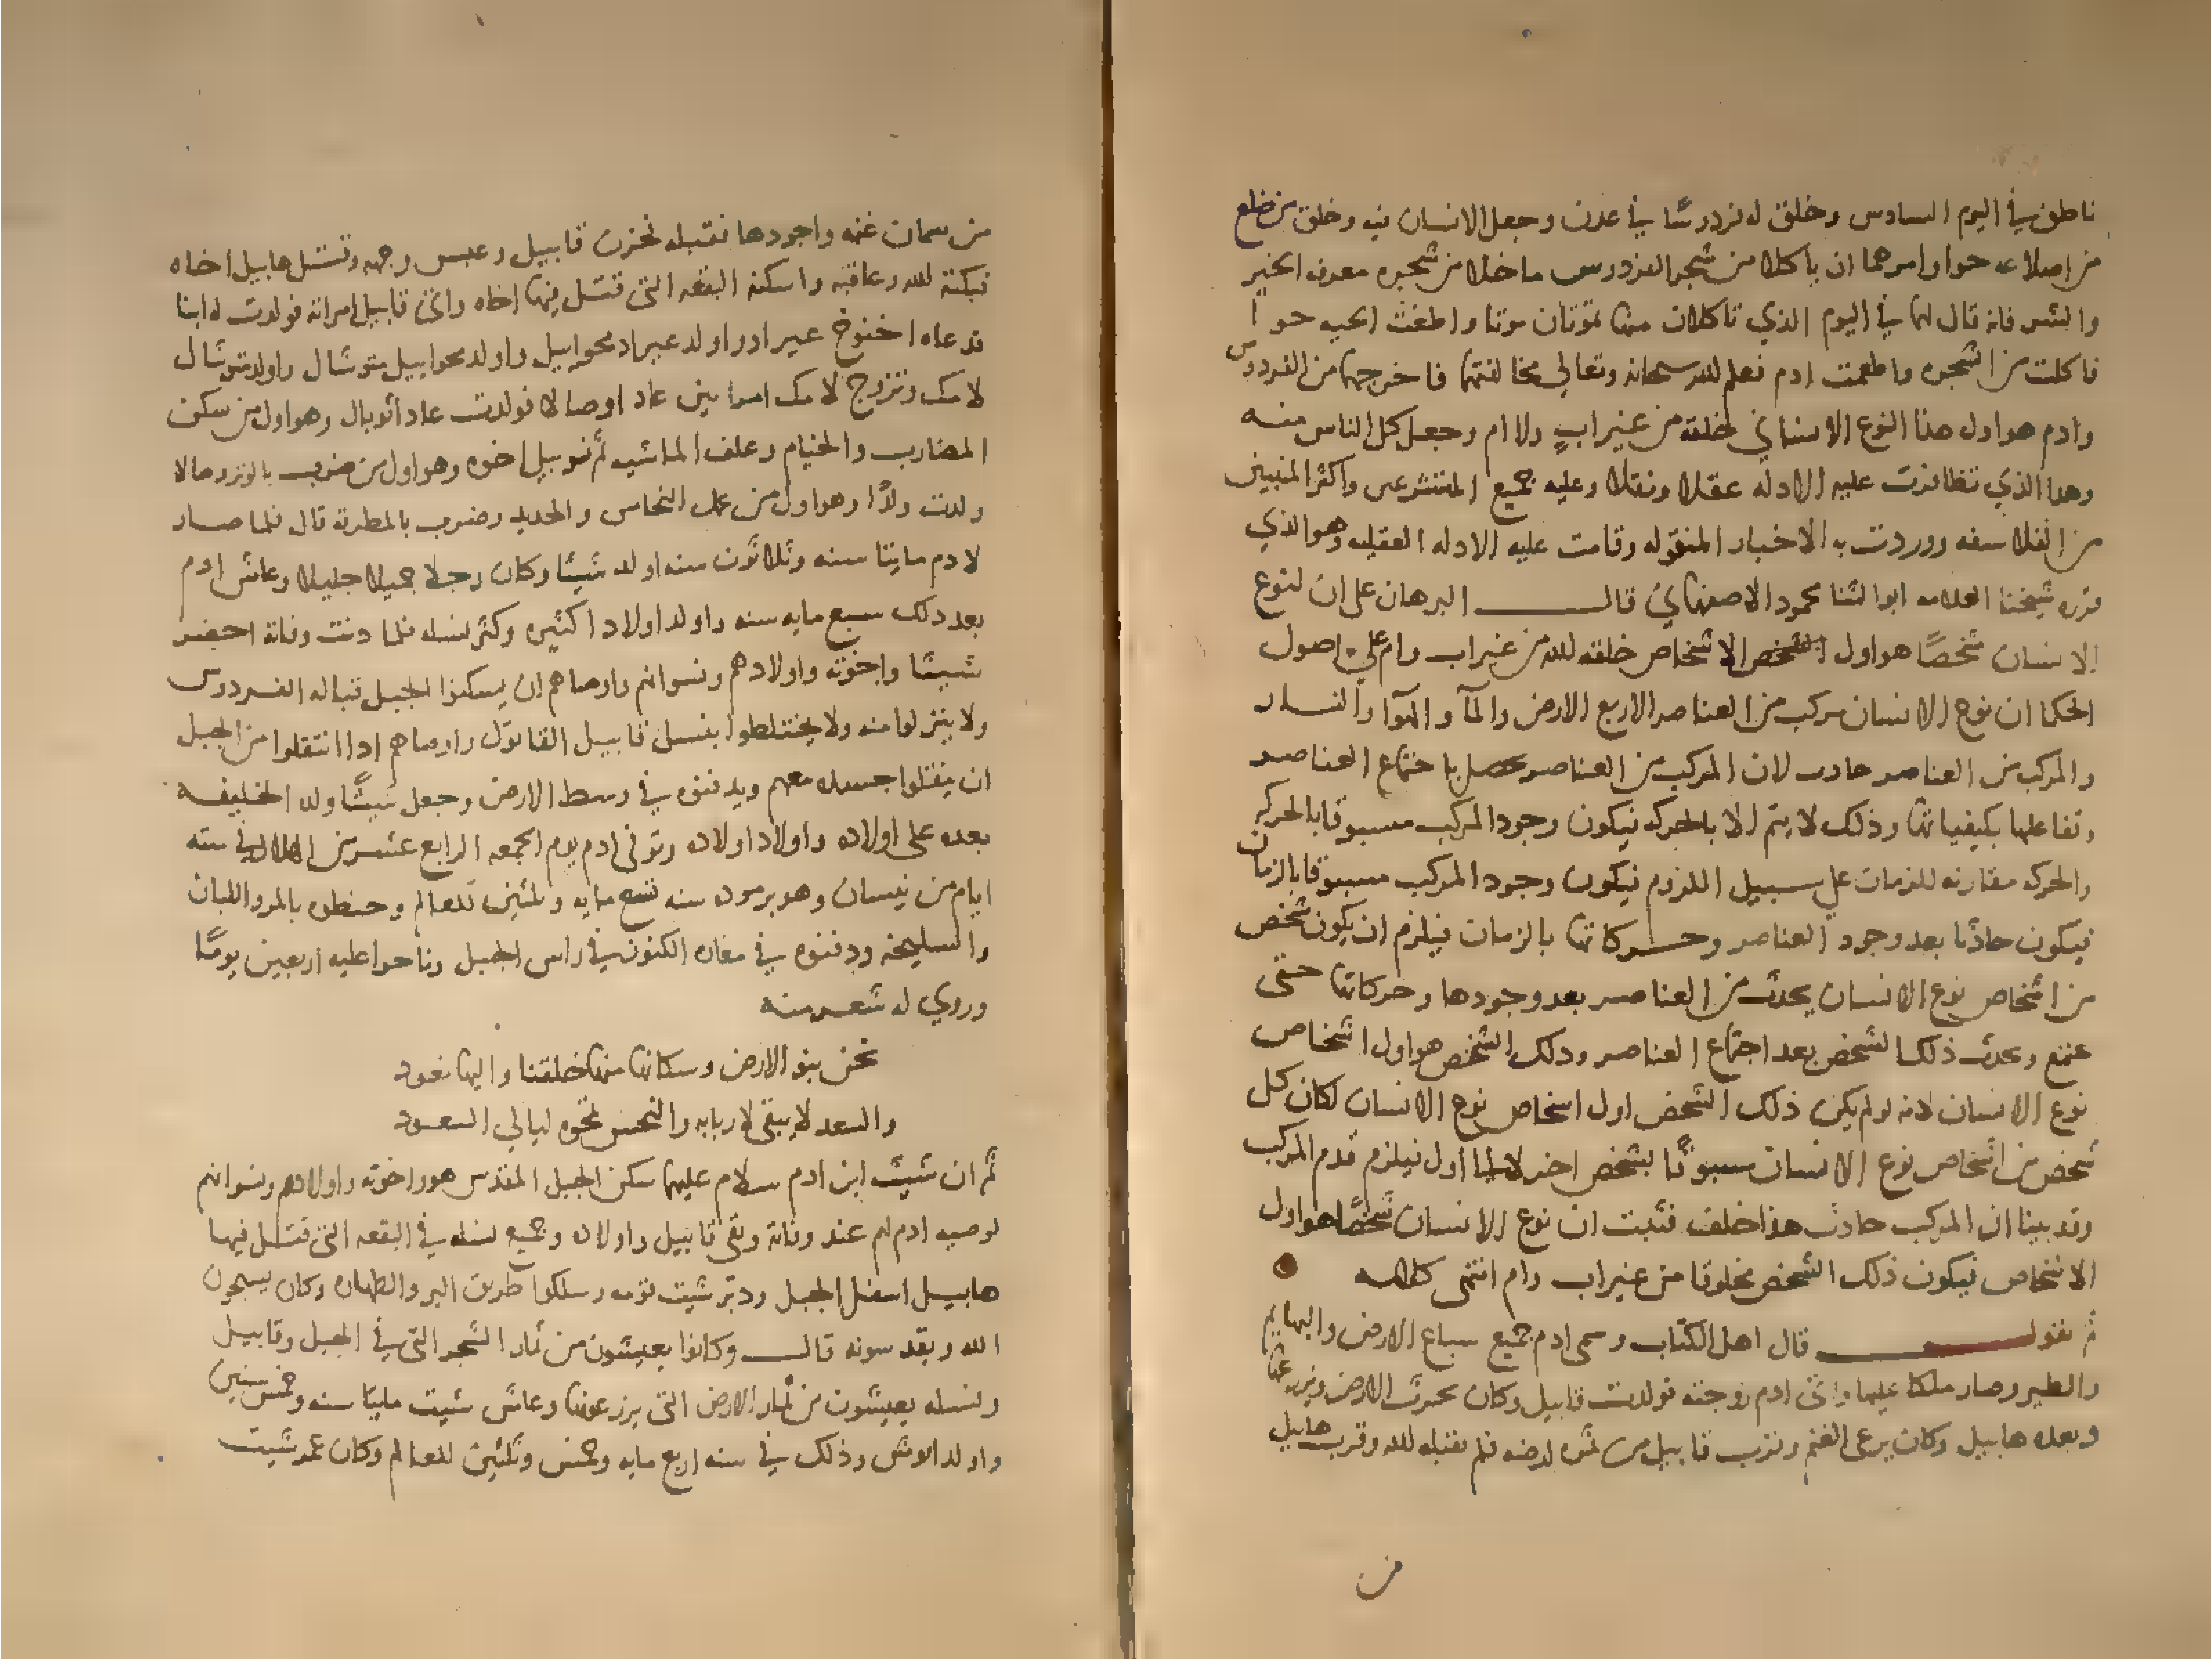 ناطق في اليوم السادس وخلق له فردوسا في عدن وجعل الانسان فيه وخلق من ضلع
من اضلاعه حوا وامرهما ان ياكلا من شجر الفردوس ما خلا من شجره معرفه الخير
والشر فانه قال لهما في اليوم الذي تاكلان منها تموتان موتا واطغت الحيه حوا
فاكلت من الشجره واطعمت ادم فعلم الله سبحانه وتعالي مخالفتهما فاخرجهما من الفردوس
وادم هو اول هذا النوع الانساني خلقه من غير ابٍ ولا ام وجعل كل الناس منه
وهذا الذي تظافرت عليه الادله عقلا ونقلا وعليه جميع المتشرعين واكثر المنبيين
من الفلاسفه ووردت به الاخبار المنقوله وقامت عليه الادله العقليه وهو الذي
قرره شيخنا العلامه ابو الثنا محمود الاصفهاني قال البرهان على ان لنوع
الانسان شخصًا هو اول الاشخاص خلقه الله من غير اب وام على اصول
الحكما ان نوع الانسان مركب من العناصر الاربع الارض والمآ والهوآ والنار
والمركب من العناصر حادث لان المركب من العناصر يحصل باجتماع العناصر
وتفاعلها بكيفياتها وذلك لا يتم الا بالحركه فيكون وجود المركب مسبوقا بالحركه
والحركه مقارنه للزمان علي سبيل اللزوم فيكون وجود المركب مسبوقا بالزمان
فيكون حادثا بعد وجود العناصر وحركاتها بالزمان فيلزم ان يكون شخص
من اشخاص نوع الانسان يحدث من العناصر بعد وجودها وحركاتها حتى
تجتمع ويحدث ذلك الشخص بعد اجتماع العناصر وذلك الشخص هو اول اشخاص
نوع الانسان لانه لو لم يكن ذلك الشخص اول اشخاص نوع الانسان لكان كل
شخص من اشخاص نوع الانسان مسبوقًا بشخص اخر لا الى اول فيلزم قدم المركب
وقد بينا ان المركب حادث هذا خلف فثبت ان نوع الانسان شخصًا هو اول
الاشخاص فيكون ذلك الشخص مخلوقا من غير اب وام انتهى كلامه
ثم نقول قال اهل الكتاب وسمى ادم جميع سباع الارض والبهايم
والطير وصار ملكا عليها واتى ادم زوجته فولدت قابيل وكان يحرث الارض ويزرعها
وبعده هابيل وكان يرعى الغنم وقرب قابيل من ثمره ارضه فلم يقبله الله وقرب هابيل
من
من سمان غنمه واجودها فقبله فحزن قابيل وعبس وجهه وقتل هابيل اخاه
فبكته الله وعاقبه واسكنه البقعه التى قتل فيها اخاه واتى قابيل امراته فولدت له ابنا
فدعاه اخنوخ عيراد واولد عيراد محوابيل واولد محوابيل متوشال واولد متوشال
لامك وتزوج لامك امراتين عاد اوصالا فولدت عاد اثوبال وهو اول من سكن
المضارب والخيام وعلف الماشيه ثم توبيل اخوه وهو اول من ضرب بالوتر وصالا
ولدت ولدًا وهو اول من عمل النحاس والحديد وضرب بالمطرقه قال فلما صار
لادم مايتا سنه وثلاثون سنه اولد شيثا وكان رجلا جميلا جليلا وعاش ادم
بعد ذلك سبع مايه سنه واولد اولادا كثيره وكثر نسله فلما دنت وفاته احضر
شيثا واخوته واولادهم ونسوانهم واوصاهم ان يسكنوا الجبل قباله الفردوس
ولا ينزلوا منه ولا يختلطوا بنسل قابيل القاتول واوصاهم اذا انتقلوا من الجبل
ان ينقلوا جسده معهم ويدفنوه في وسط الارض وجعل شيثًا ولده الخليفه
بعده على اولاده واولاد اولاده وتوفى ادم يوم الجمعه الرابع عشر من الهلال في سته
ايام من نيسان وهو برموده سنه تسع مايه وثلثين للعالم وحنطوه بالمر واللبان
والسليخه ودفنوه في مغاره الكنوز في راس الجبل وناحوا عليه اربعين يومًا
وروي له شعر منه
نحن بنو الارض وسكانها منها خلقنا واليها نعود
والسعد لا يبقى لاربابه والنحس تمحوه ليالي السعود
ثم ان شيث ابن ادم سلام عليهما سكن الجبل المقدس هو واخوته واولادهم ونسوانهم
لوصيه ادم لهم عند وفاته وبقى قابيل واولاده وجميع نسله في البقعه التى قتل فيها
هابيل اسفل الجبل ودبر شيث قومه وسلكوا طريق البر والطهاره وكان يسبحون
الله ويقدسونه قال وكانوا يعيشون من ثمار الشجر التى في الجبل وقابيل
ونسله يعيشون من ثمار الارض التى يزرعونها وعاش شيث مايتا سنه وخمس سنين
واولد انوش وذلك في سنه اربع مايه وخمس وثلثين للعالم وكان عمر شيث